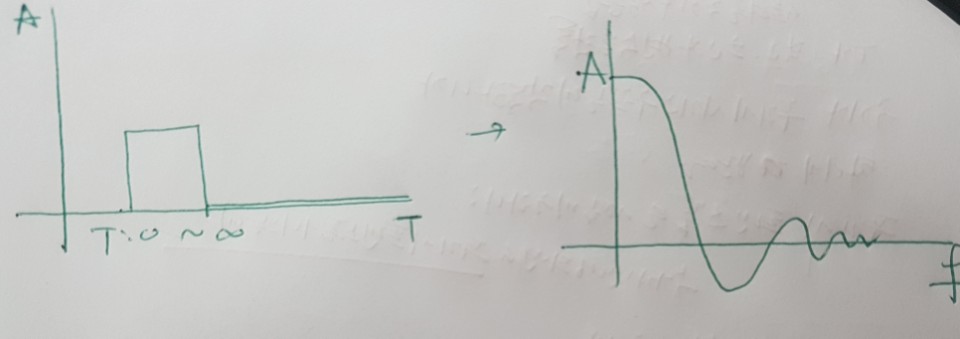 A
T:0 ~ ∞
T
→
A
f